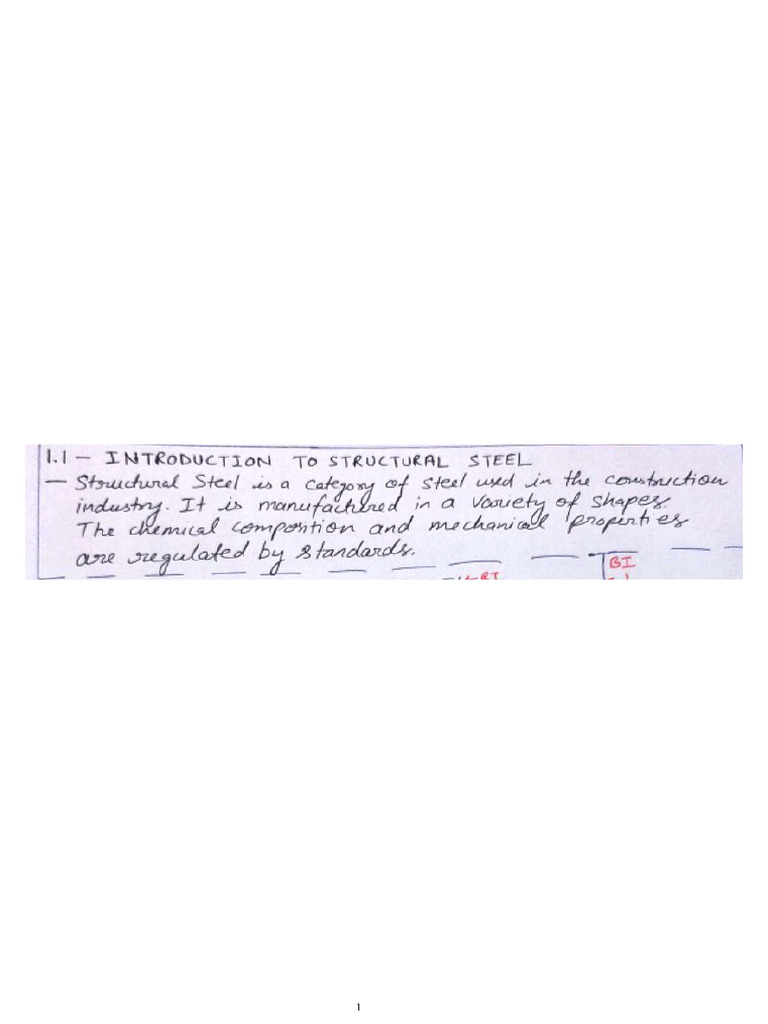 1.1 – INTRODUCTION TO STRUCTURAL STEEL
– Structural Steel is a category of steel used in the construction
industry. It is manufactured in a variety of shapes.
The chemical composition and mechanical properties
are regulated by standards.
BI
1